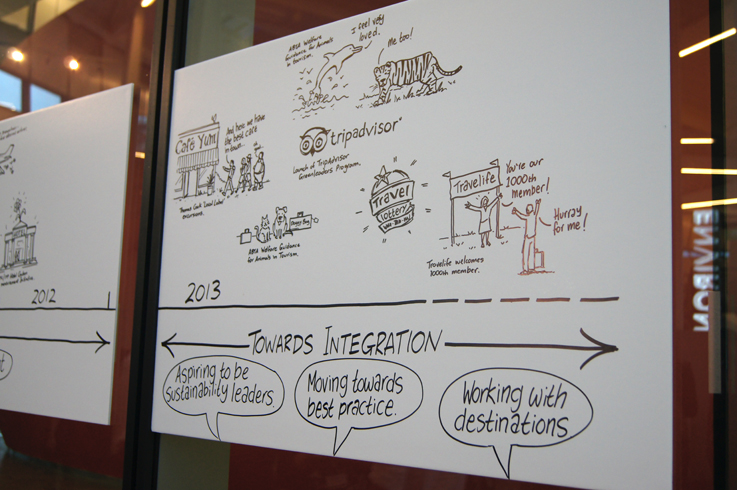 ABTA Welfare
Guidance for Animals
in Tourism.
I feel very
loved.
Me too!
Café Yum
And here we have
the best café
in town...
tripadvisor
Launch of TripAdvisor
Greenleaders Program.
Thomas Cook "Local Label"
excursions.
Travel
lottery
Travelife
You're our
1000th
member!
Hurray
for me!
Doggy Bag
ABTA Welfare Guidance
for Animals in Tourism.
Travelife welcomes
1000th member.
2012
2013
TOWARDS INTEGRATION
Aspiring to be
sustainability leaders
Moving towards
best practice.
Working with
destinations